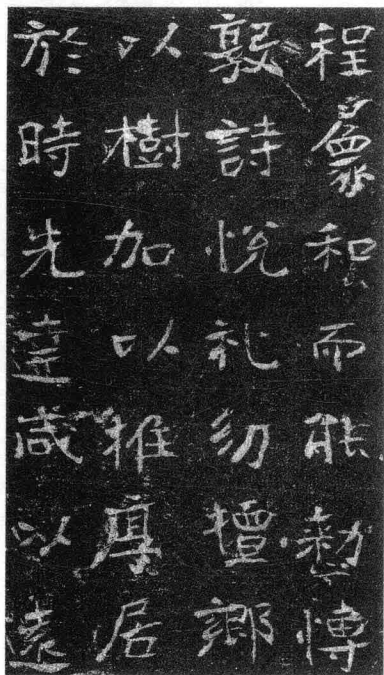 程和而能愽
敦詩悅礼幼擅鄉
以樹加以推厚居
於時先達咸以遠